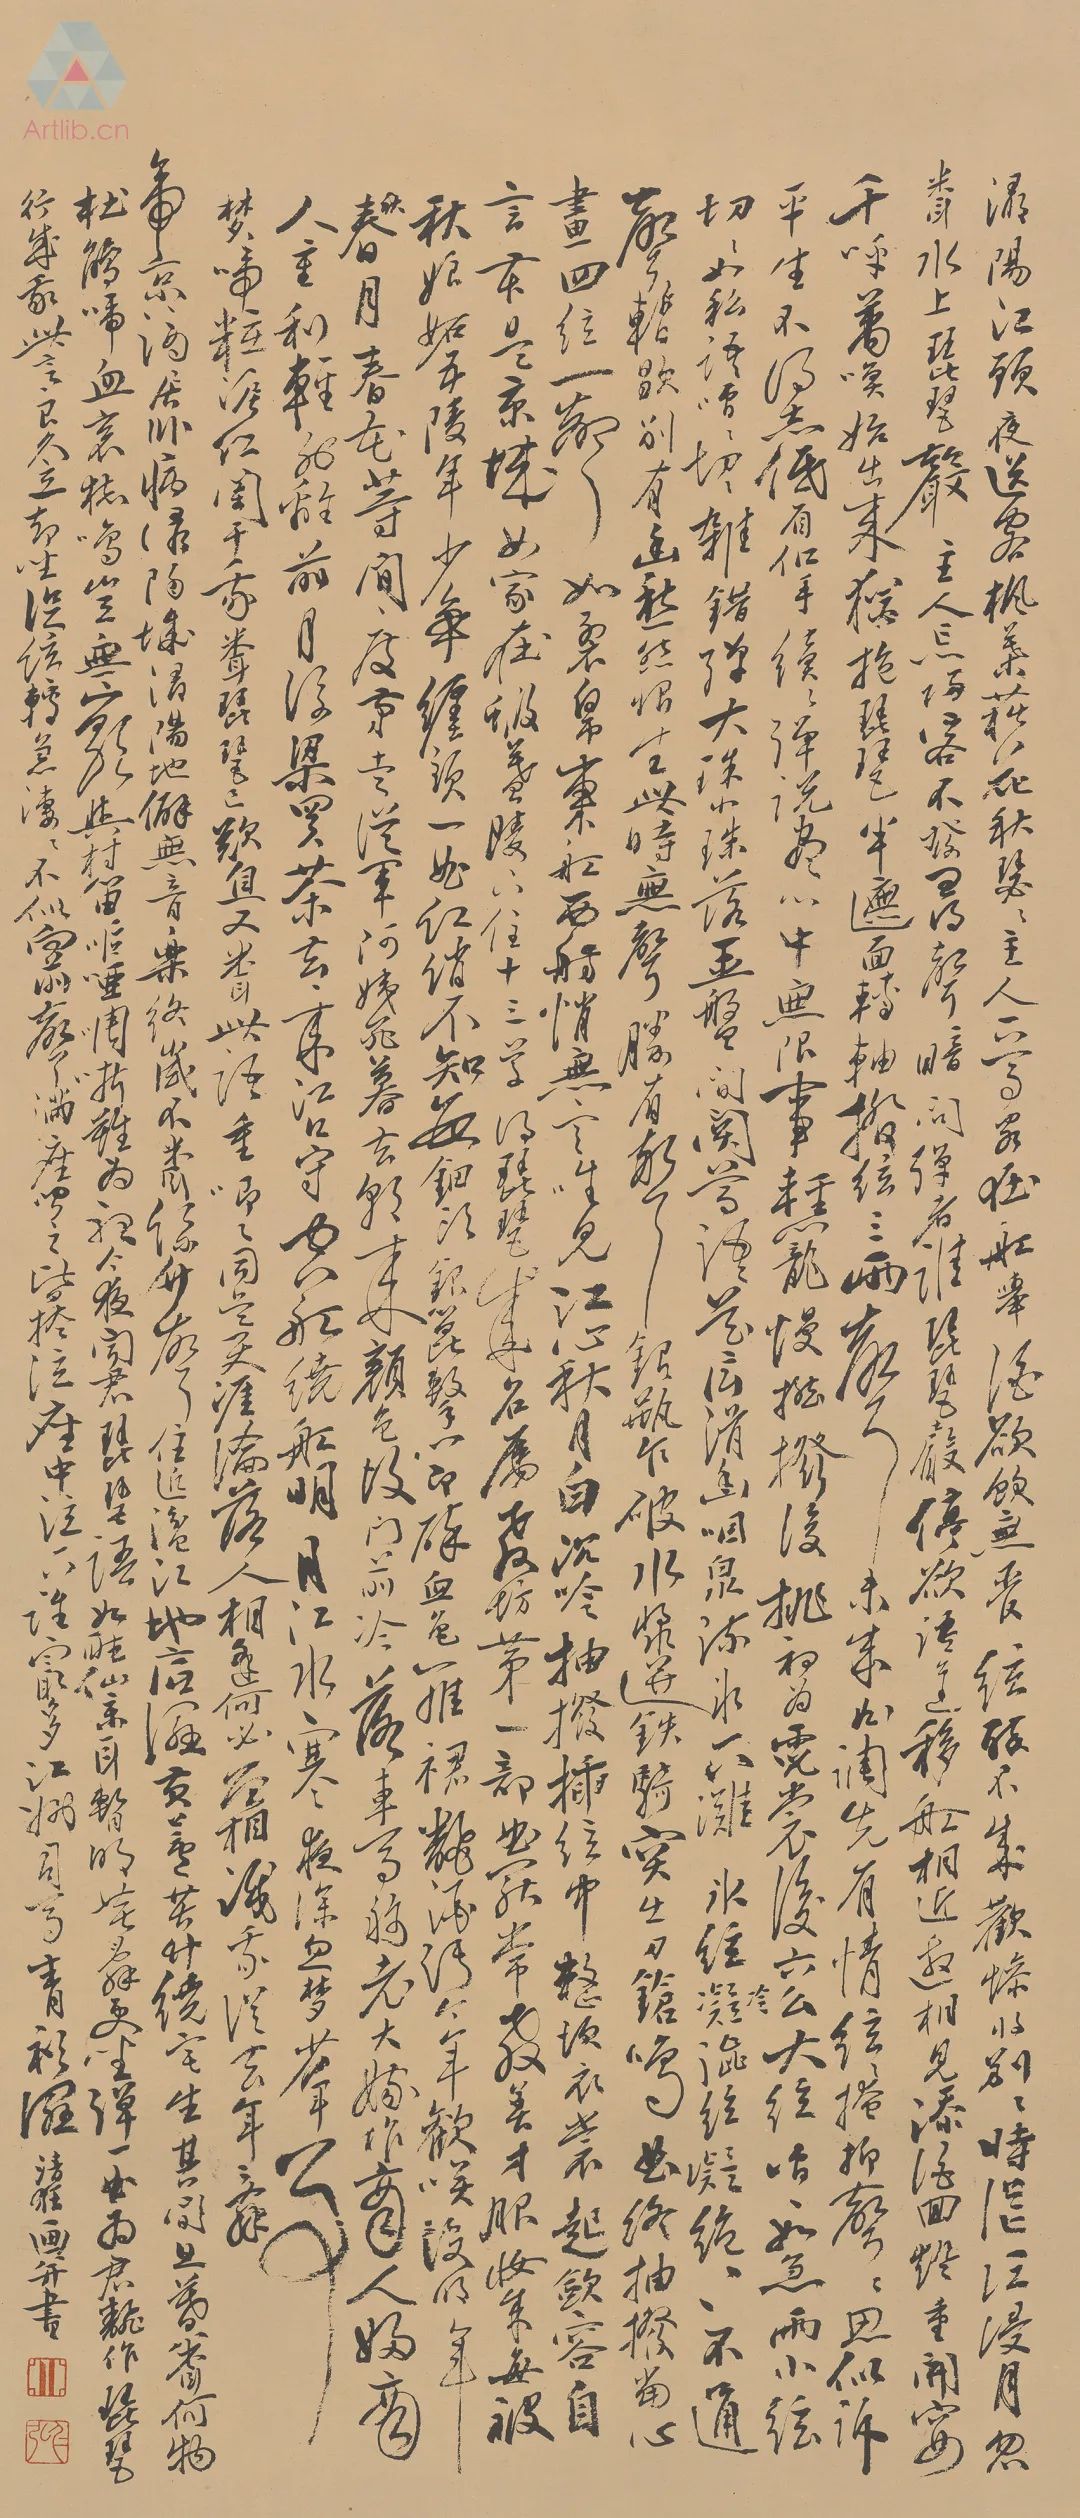 Artlib.cn
潯陽江頭夜送客楓葉荻花秋瑟〻主人下馬客在船舉酒欲飲無管絃醉不成歡慘將別〻時茫〻江浸月忽
聞水上琵琶聲主人忘歸客不發尋聲暗問彈者誰琵琶聲停欲語遲移船相近邀相見添酒回燈重開宴
千呼萬喚始出來猶抱琵琶半遮面轉軸撥絃三兩聲未成曲調先有情絃〻掩抑聲〻思似訴
平生不得志低眉信手續〻彈說盡心中無限事輕攏慢撚撥復挑初為霓裳後六幺大絃嘈〻如急雨小絃
切〻如私語嘈〻切〻雜錯彈大珠小珠落玉盤間關鶯語花底滑幽咽泉流氷下灘氷絃冷凝澁絃凝絕〻不通
聲暫歇別有幽愁恨生此時無聲勝有聲銀瓶乍破水漿迸鐵騎突出刀鎗鳴曲終抽撥當心
畫四絃一聲如裂帛東船西舫悄無言唯見江心秋月白沉吟抽撥插絃中整頓衣裳起歛容自
言本是京城女家在蝦蟇陵下住十三學得琵琶成名屬教坊第一部曲罷常教善才服妝成每被
秋娘妬五陵年少爭纏頭一曲紅綃不知數鈿頭銀篦擊節碎血色羅裙翻酒污今年歡笑復明年
秋月春花等閒度弟走從軍阿姨死暮去朝來顏色故門前冷落車馬稀老大嫁作商人婦商
人重利輕別離前月浮梁買茶去〻來江口守空船繞船明月江水寒夜深忽夢少年事
夢啼粧淚紅闌干我聞琵琶已歎息又聞此語重唧〻同是天涯淪落人相逢何必曾相識我從去年辭
帝京謫居臥病潯陽城潯陽地僻無音樂終歲不聞絲竹聲住近湓江地底濕黃蘆苦竹繞宅生其間旦暮聞何物
杜鵑啼血哀猿鳴豈無山歌與村笛嘔啞嘲哳難為聽今夜聞君琵琶語如聽仙樂耳暫明莫辭更坐彈一曲為君翻作琵琶
行感我此言良久立却坐促絃轉急淒〻不似向前聲滿座聞之皆掩泣座中泣下誰最多江州司馬青衫濕 畫并書